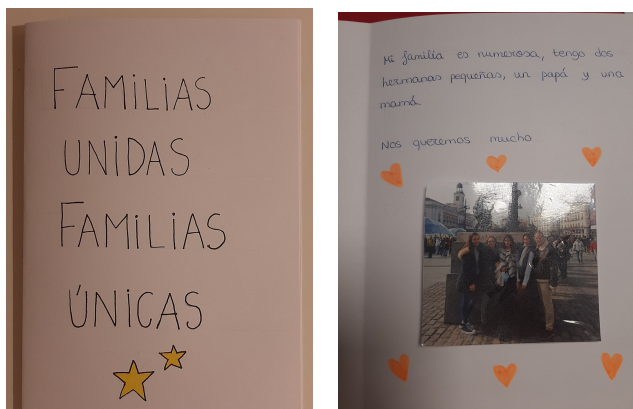 FAMILIAS
UNIDAS
FAMILIAS
ÚNICAS
Mi familia es numerosa, tengo dos
hermanas pequeñas, un papá y una
mamá.
Nos queremos mucho